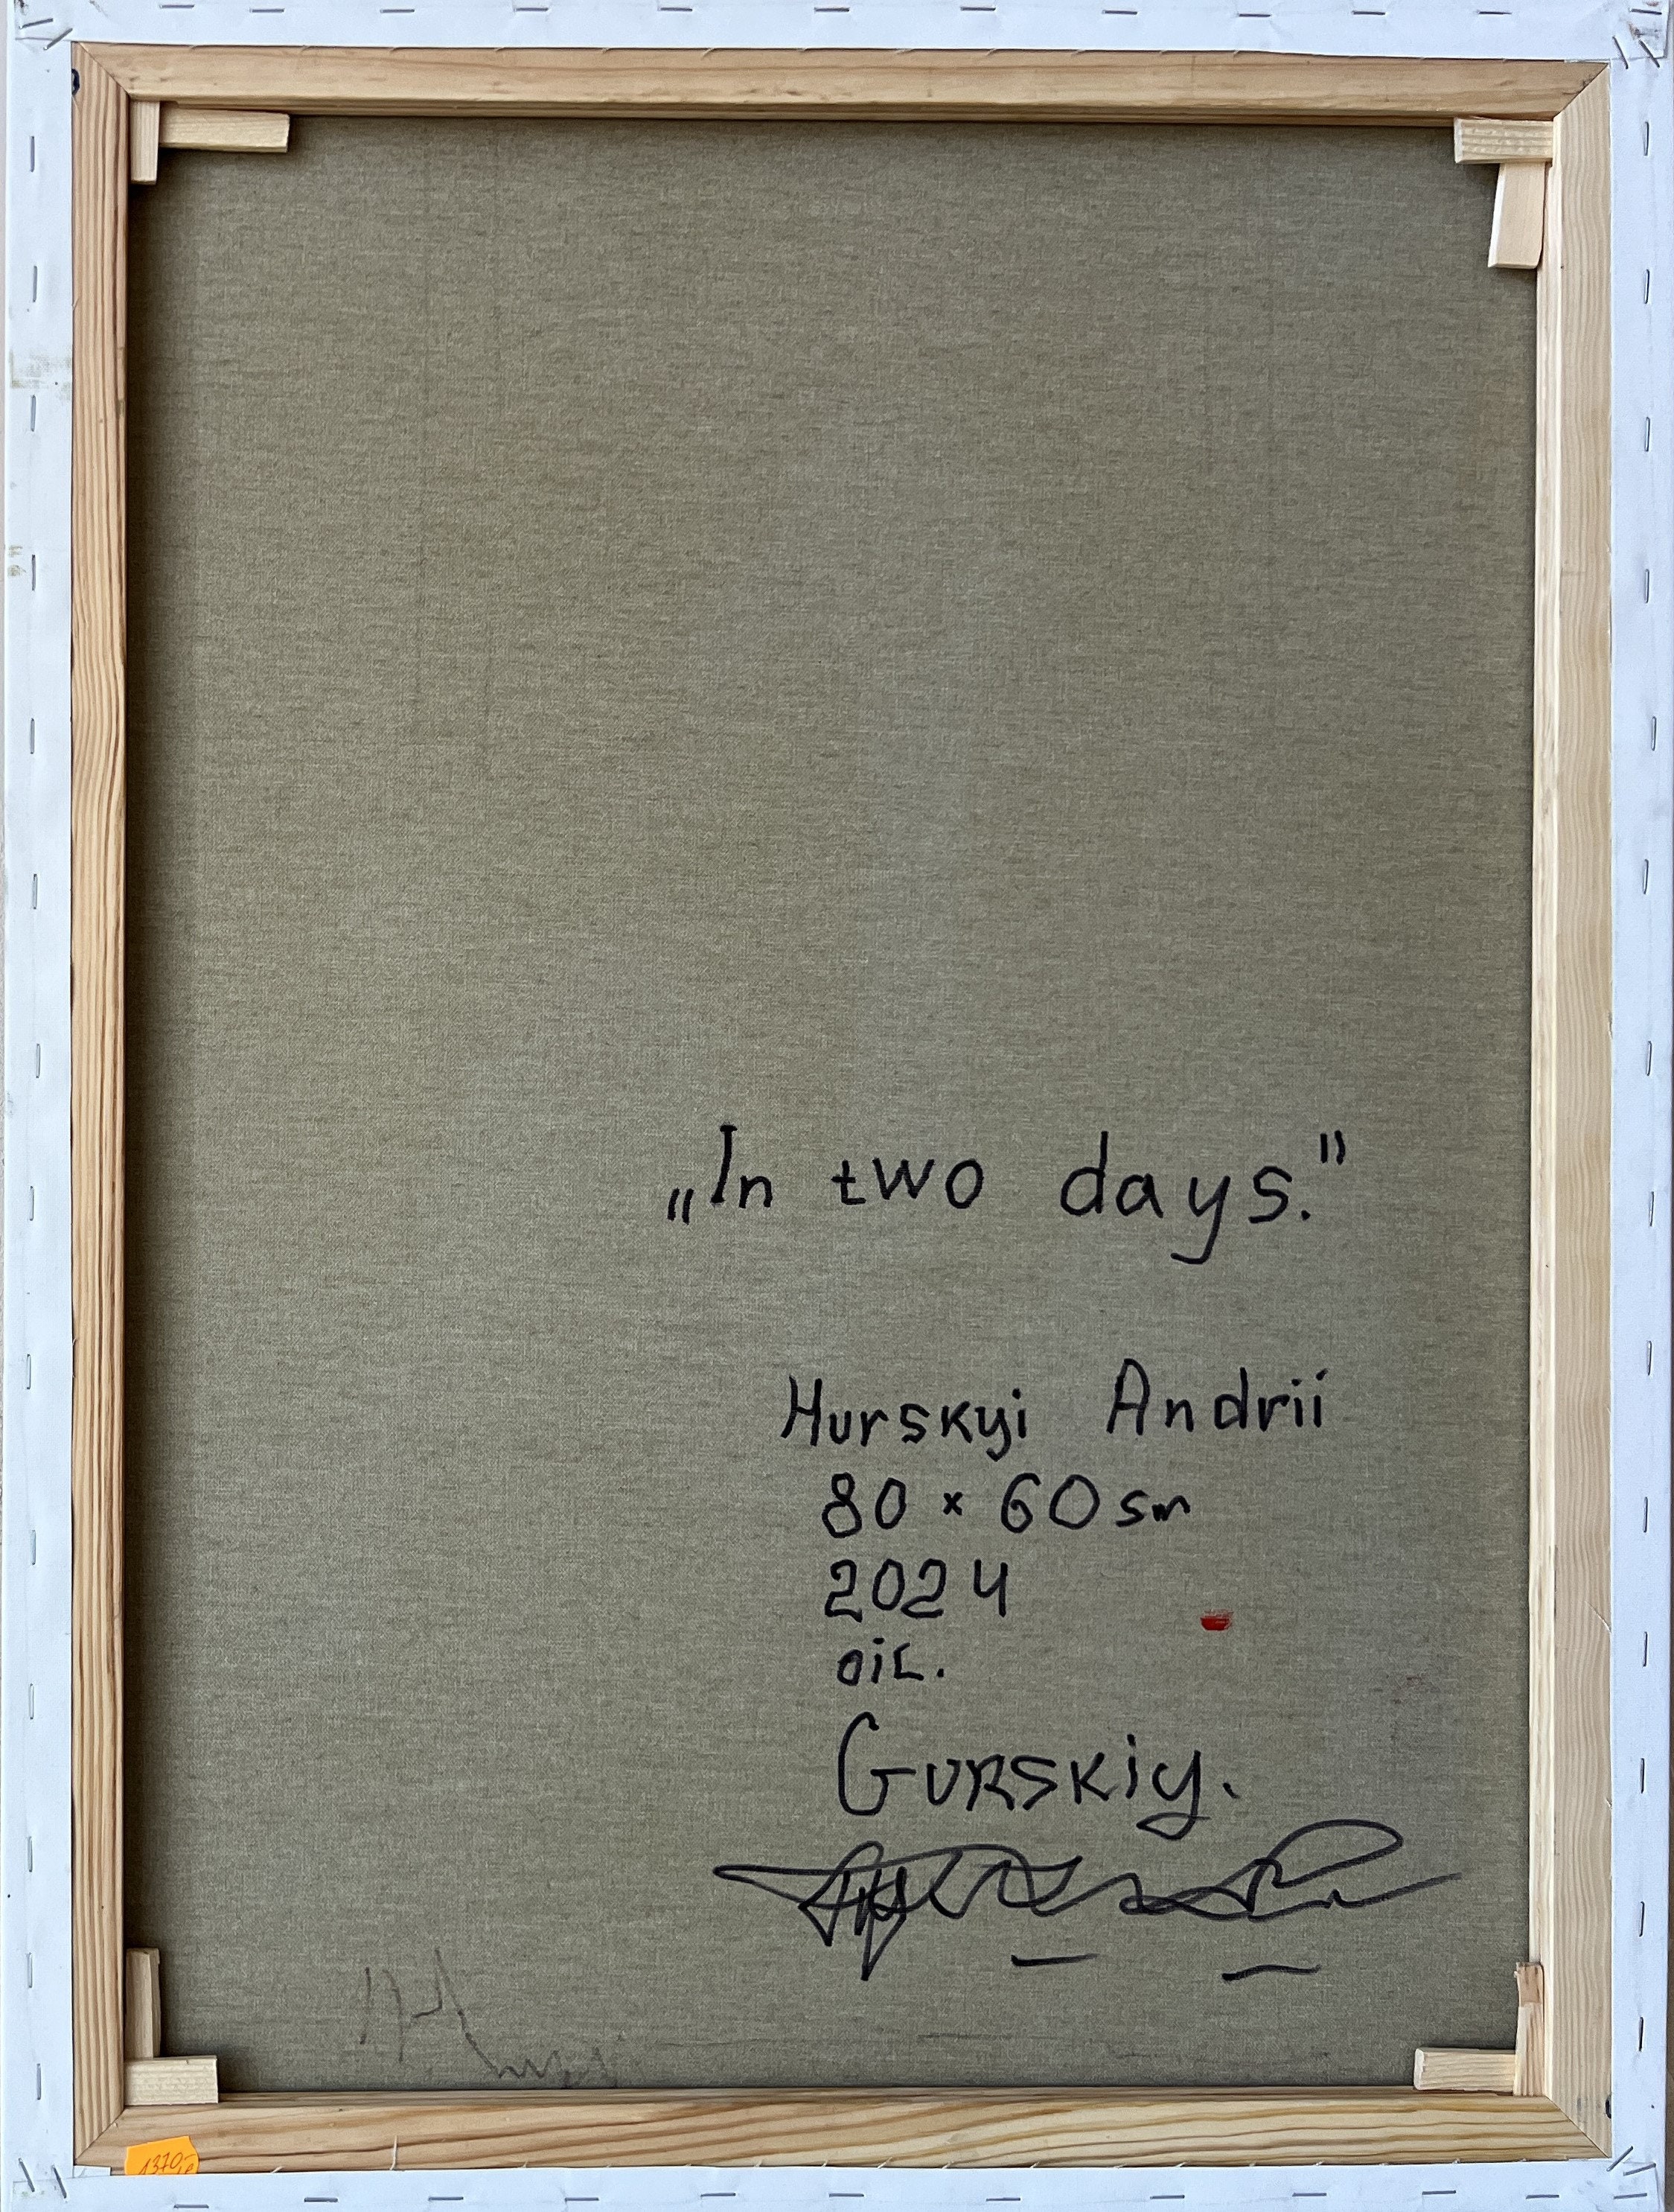 „In two days."
Hurskyi Andrii
80 × 60 sm
2024
oil.
Gurskiy.
1370,-